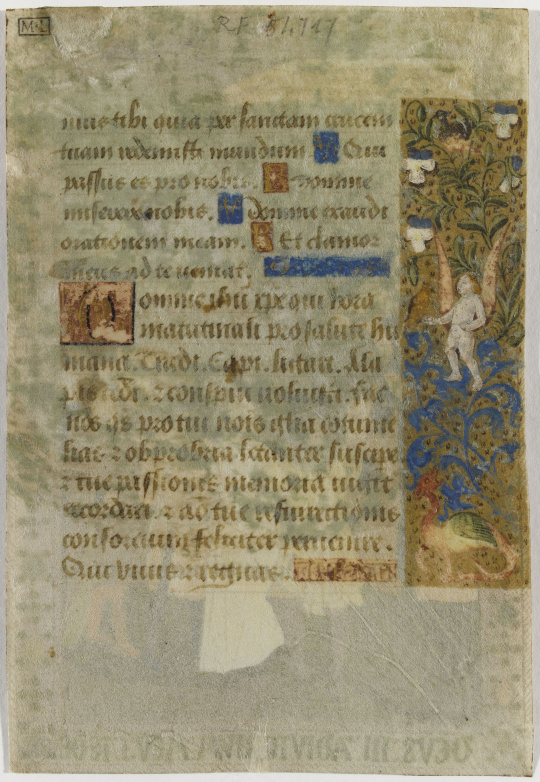 M·L
RF 51.717
mus tibi quia per sanctam crucem
tuam redemisti mundum Qui
passus es pro nobis. Domine
miserere nobis. Domine exaudi
orationem meam. Et clamor
meus ad te veniat.
Domine ihu xpe qui hora
matutinali pro salute hu
mana Tradi. Capi. ligari. Ala
conspui voluisti. fac
nos qs pro tui nois gloria
lias ⁊ obprobria letanter suscipe
⁊ tue passionis memoria
recordari. ⁊ ad tue resurrectionis
consorcium feliciter pervenire.
Qui vivis ⁊ regnas.
DEUS IN ADIUTORIUM